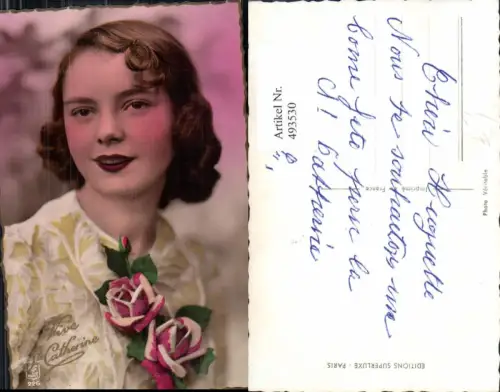 Vive
Ste Catherine
Artikel Nr.
493530
Chère Huguette
Nous te souhaitons une
bonne fête pour la
Ste Catherine
Imprimé France
Photo Véritable
ÉDITIONS SUPERLUXE - PARIS